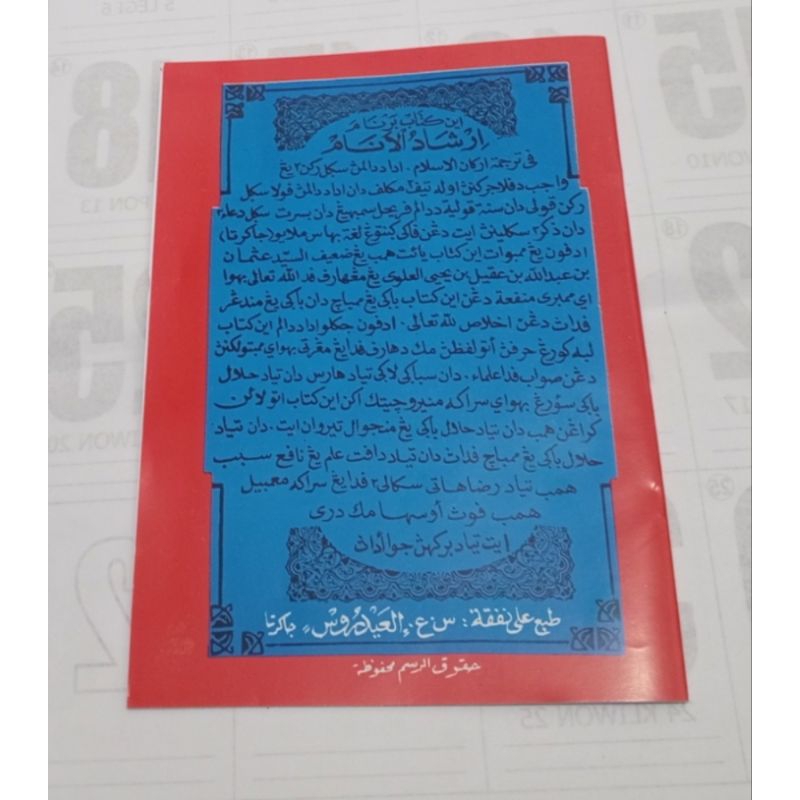 اين كتاب برنام
إرشاد الأنام
فى ترجمة اركان الاسلام . اداددالمن سكل ركن٢ يڠ
واجب دفلاجركنن اوله تيف٢ مكلف دان اداددالمن فولا سكل
ركن قولى دان سنة قولية ددالم فريجل سمبهيڠ دان بسرت سكل دعاء٢
دان ذكر٢ سكلينن ايت دڠن فاكى كنتوڠ لغة بهاس ملايو (جاكرتا)
ادفون يڠ ممبوات اين كتاب يائت همب يڠ ضعيف السيد عثمان
بن عبدالله بن عقيل بن يحيى العلوى يڠ مڠهارف فد الله تعالى بهوا
اى ممبرى منفعة دڠن اين كتاب باكى يڠ ممباچ دان باكى يڠ مندڠر
فدان دڠن اخلاص لله تعالى . ادفون جكلو اداددالم اين كتاب
لبه كورڠ حرفن اتو لفظن مك دهارف فد يڠ مڠرتى بهواى ممبتولكنن
دڠن صواب فد اعلماء . دان سباكى لاكى تياد هارس دان تياد حلال
باكى سئورڠ بهواى سراكه منيرو چيتك اكن اين كتاب اتو لائن
كراڠن همب دان تياد حلال باكى يڠ منجوال تيروان ايت . دان تياد
حلال باكى يڠ ممباچ فدان دان تياد دافت علم يڠ نافع سبب
همب تياد رضا هاتى سكالى٢ فد يڠ سراكه مڠمبيل
همب فوث أوسها مك درى
ايت تياد بركهن جوا ادان
طبع على نفقة : س.ع. العيدروس ، جاكرتا
حقوق الرسم محفوظة
5 LEGI 6
11
12
13
14
15
18
WON 10
PON 13
18
25
17
KLIWON 20
24 KLIWON 25